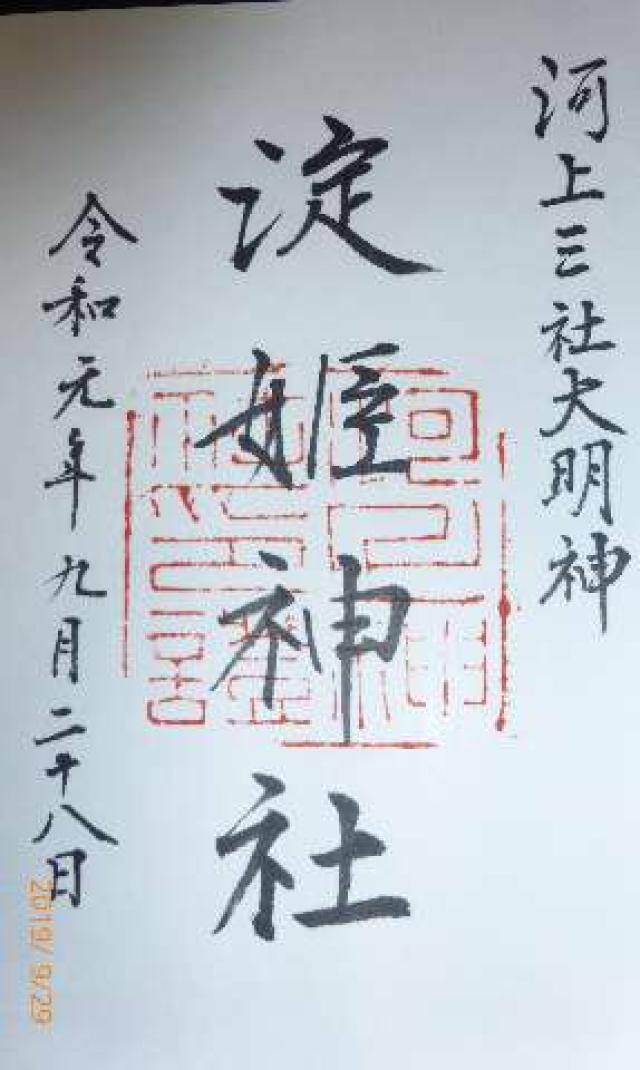 河上三社大明神
淀姫神社
令和元年九月二十八日
2019/ 9/29